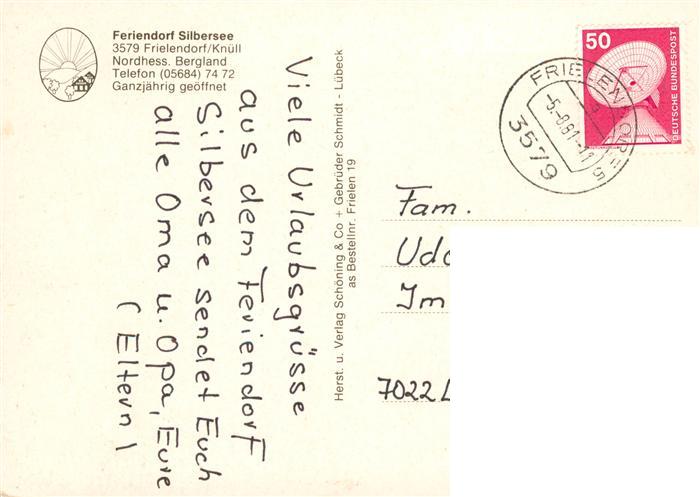 Feriendorf Silbersee
3579 Frielendorf/Knüll
Nordhess. Bergland
Telefon (05684) 74 72
Ganzjährig geöffnet
Viele Urlaubsgrüsse
aus dem Feriendorf
Silbersee sendet Euch
alle Oma u. Opa, Eure
(Eltern)
Herst. u. Verlag Schöning & Co + Gebrüder Schmidt - Lübeck
as Bestellnr. Frielen 19
50
DEUTSCHE BUNDESPOST
FRIELENDORF
3579
Fam.
Udo
Im
7022 L